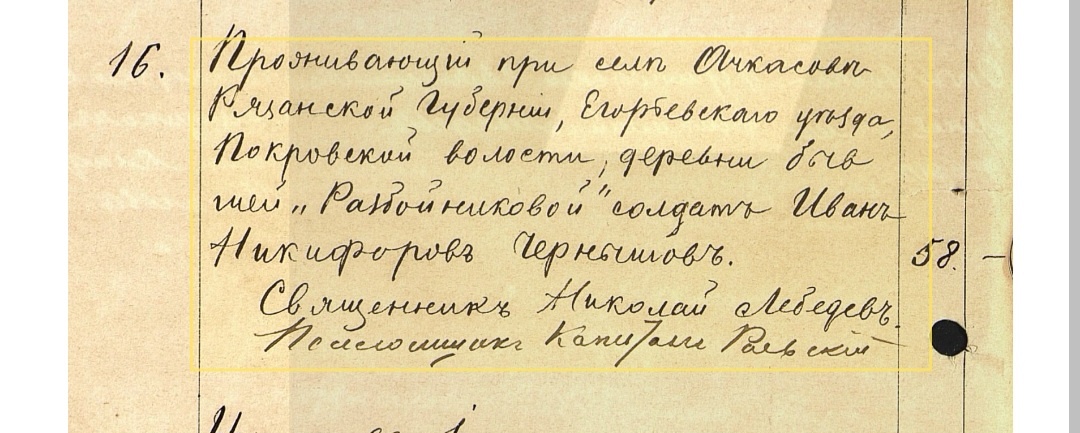 16. Проживающій при селѣ Ачкасовѣ
Рязанской Губерніи, Егорьевскаго уѣзда,
Покровской волости, деревни быв
шей „Разбойниковой" солдатъ Иванъ
Никифоровъ Чернышовъ. 58.
Священникъ Николай Лебедевъ.
Псаломщикъ